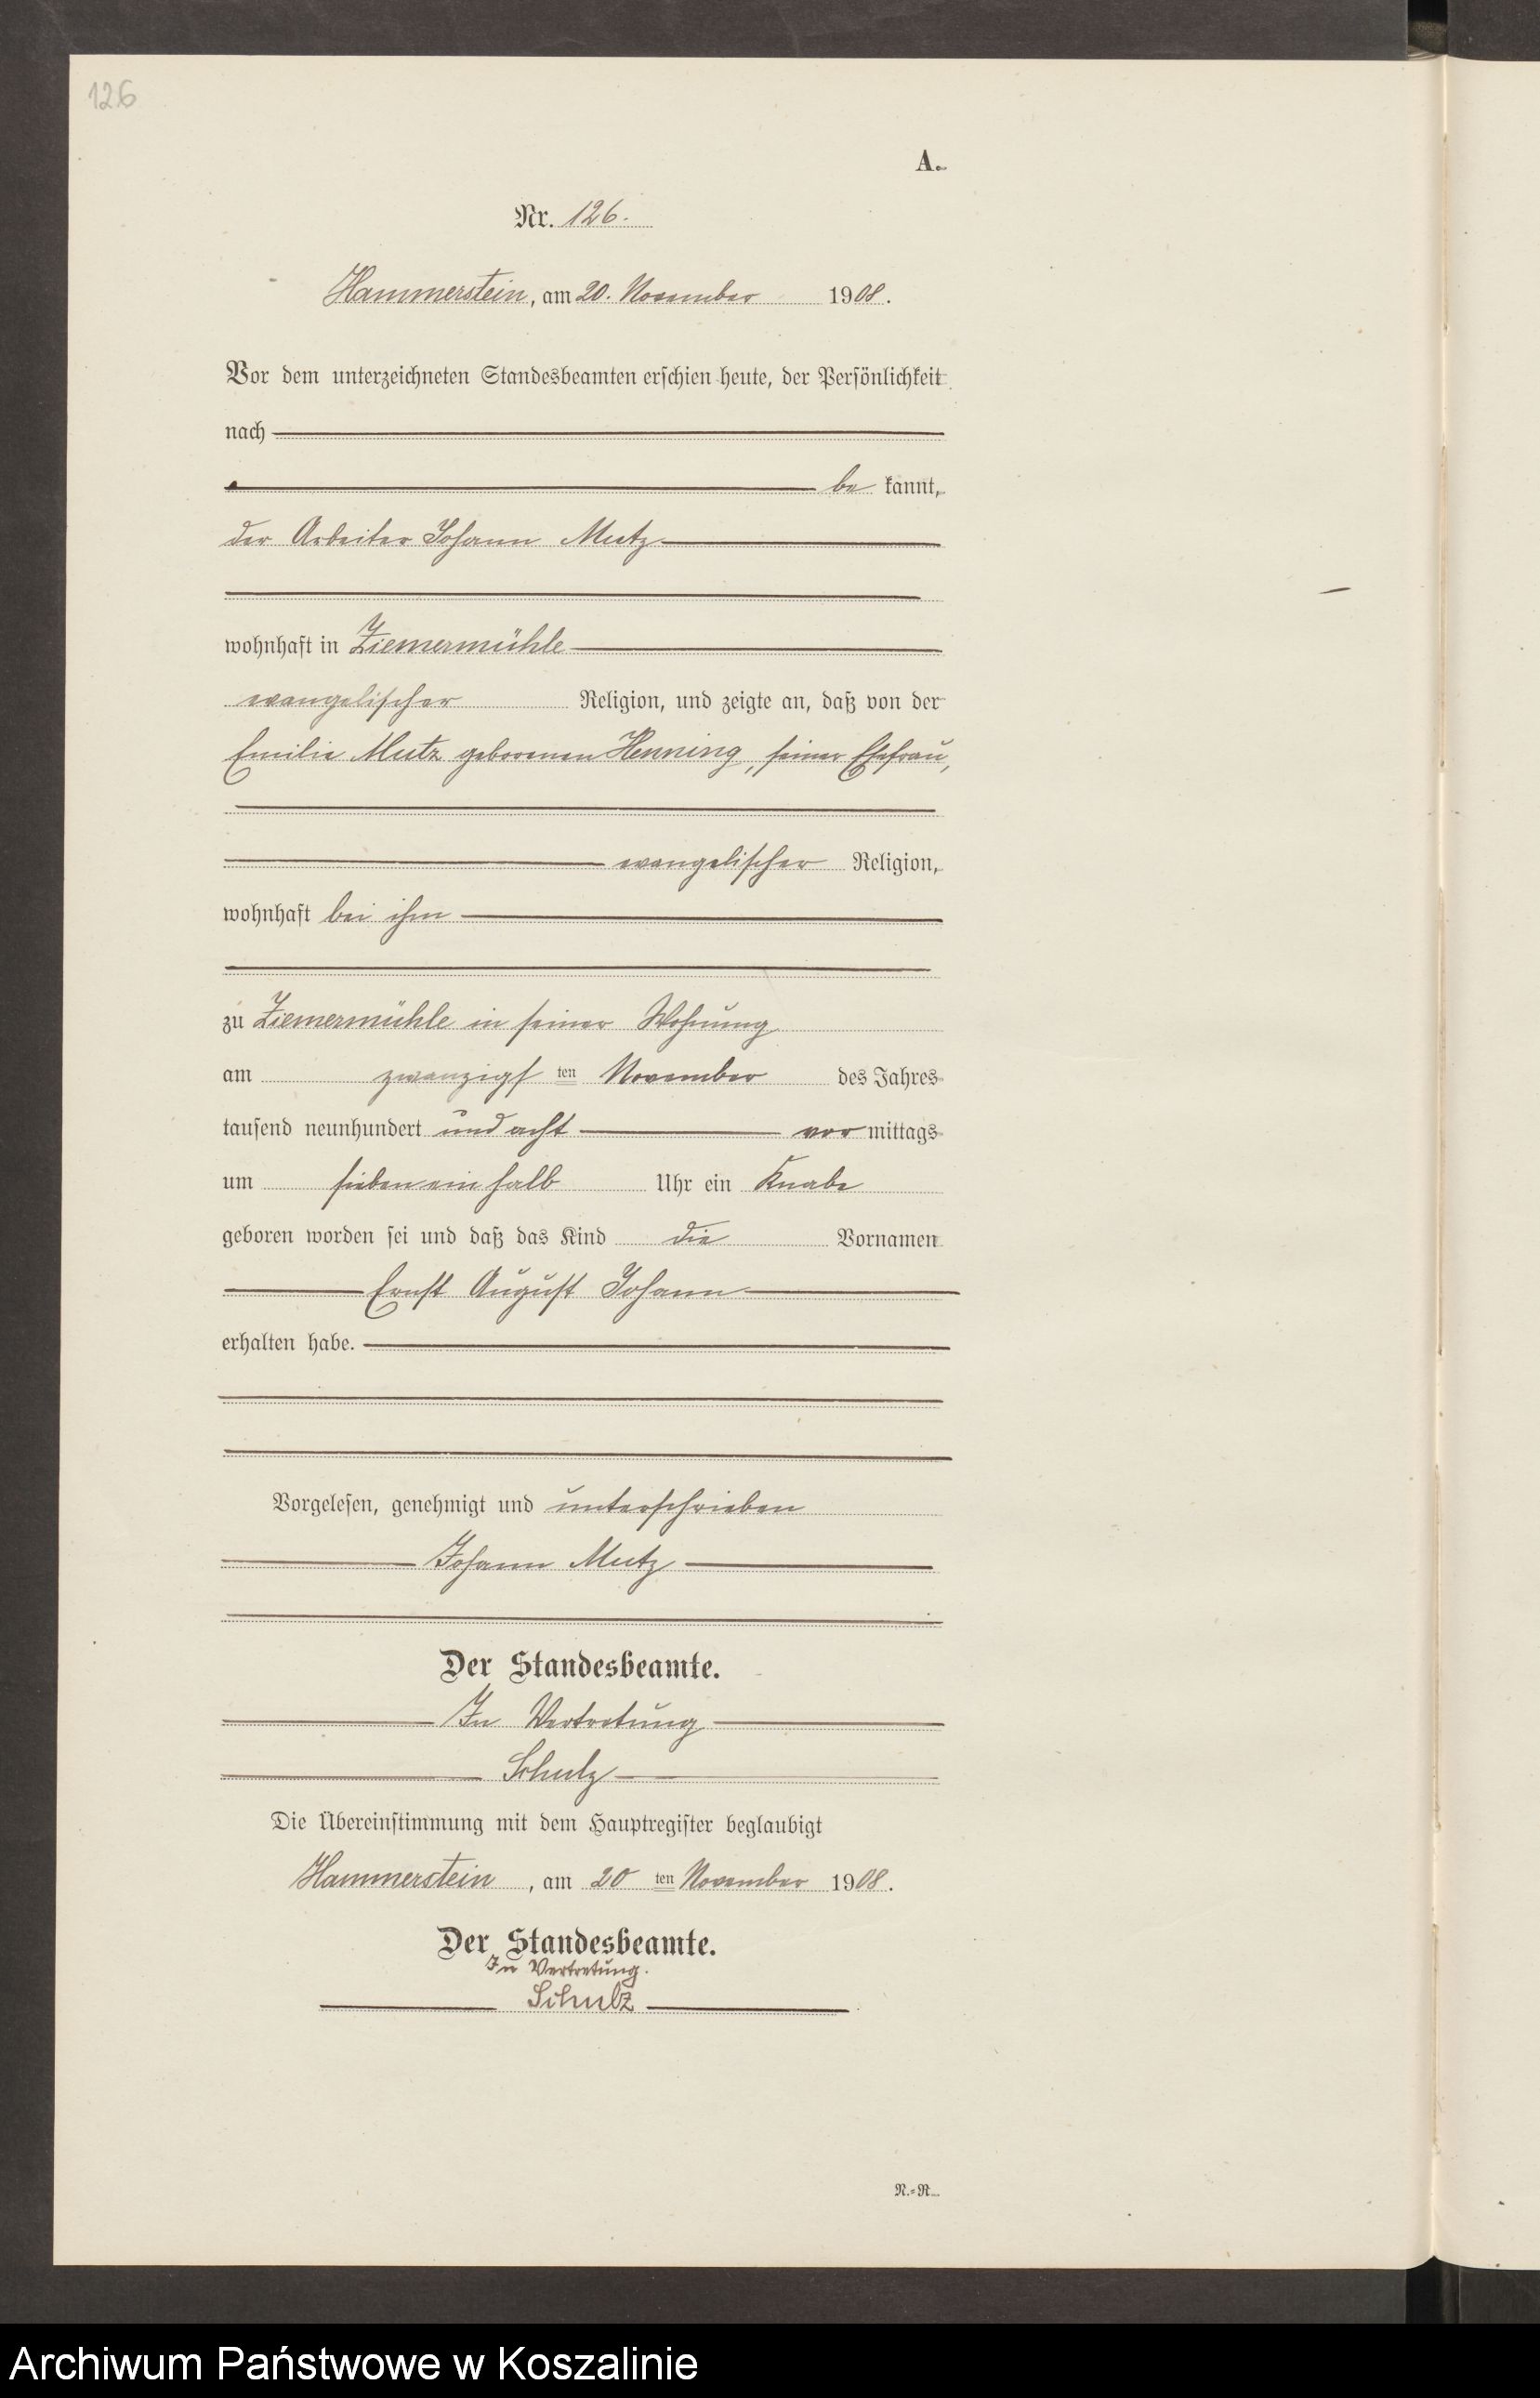 126
A.
Nr. 126.
Hammerstein, am 20. November 1908.
Vor dem unterzeichneten Standesbeamten erschien heute, der Persönlichkeit
nach
be kannt,
der Arbeiter Johann Mutz
wohnhaft in Ziemermühle
evangelischer Religion, und zeigte an, daß von der
Emilie Mutz geborenen Henning, seiner Ehefrau,
evangelischer Religion,
wohnhaft bei ihm
zu Ziemermühle in seiner Wohnung
am zwanzigs ten November des Jahres
tausend neunhundert und acht vor mittags
um sieben ein halb Uhr ein Knabe
geboren worden sei und daß das Kind die Vornamen
Ernst August Johann
erhalten habe.
Vorgelesen, genehmigt und unterschrieben
Johann Mutz
Der Standesbeamte.
In Vertretung
Schulz
Die Übereinstimmung mit dem Hauptregister beglaubigt
Hammerstein, am 20 ten November 1908.
Der Standesbeamte.
In Vertretung.
Schulz
N.=R.
Archiwum Państwowe w Koszalinie